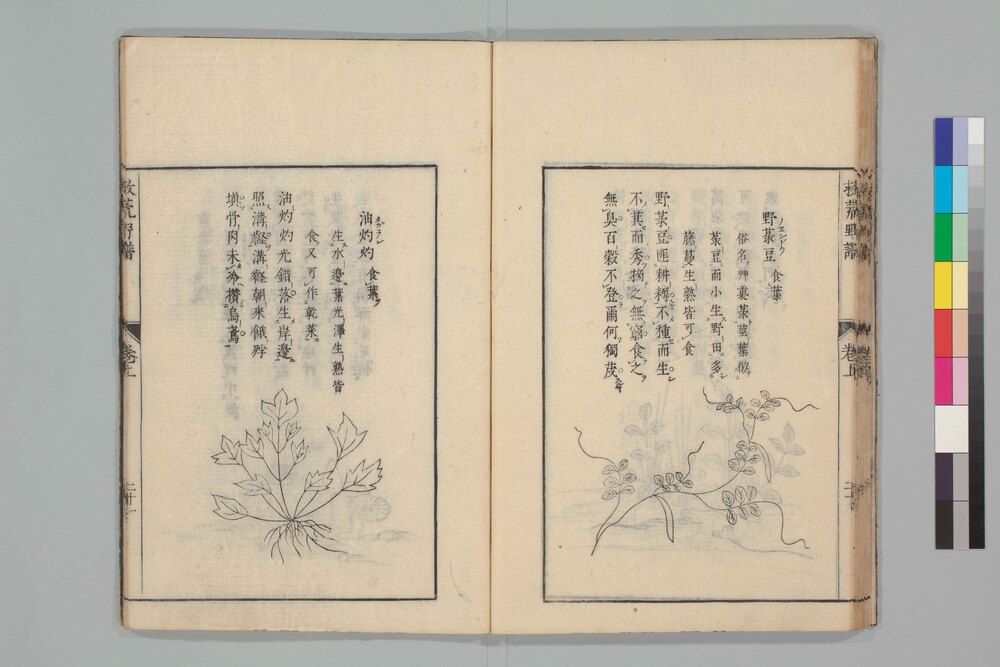 救荒野譜
卷上
二十
野菉豆 食葉
ノエンドウ
俗名艸裏菉莖葉似
菉豆而小生野田多
藤蔓生熟皆可食
野菉豆匪耕耨不種而生
不萁而秀摘之無窮食之
無臭百穀不登爾何獨茂
油灼灼 食葉
タガラシ
生水邊葉光澤生熟皆
食又可作乾菜
油灼灼光錯落生岸邊
照溝壑溝壑朝來餓殍
填骨肉未冷攢烏鳶
救荒野譜
卷上
二十一